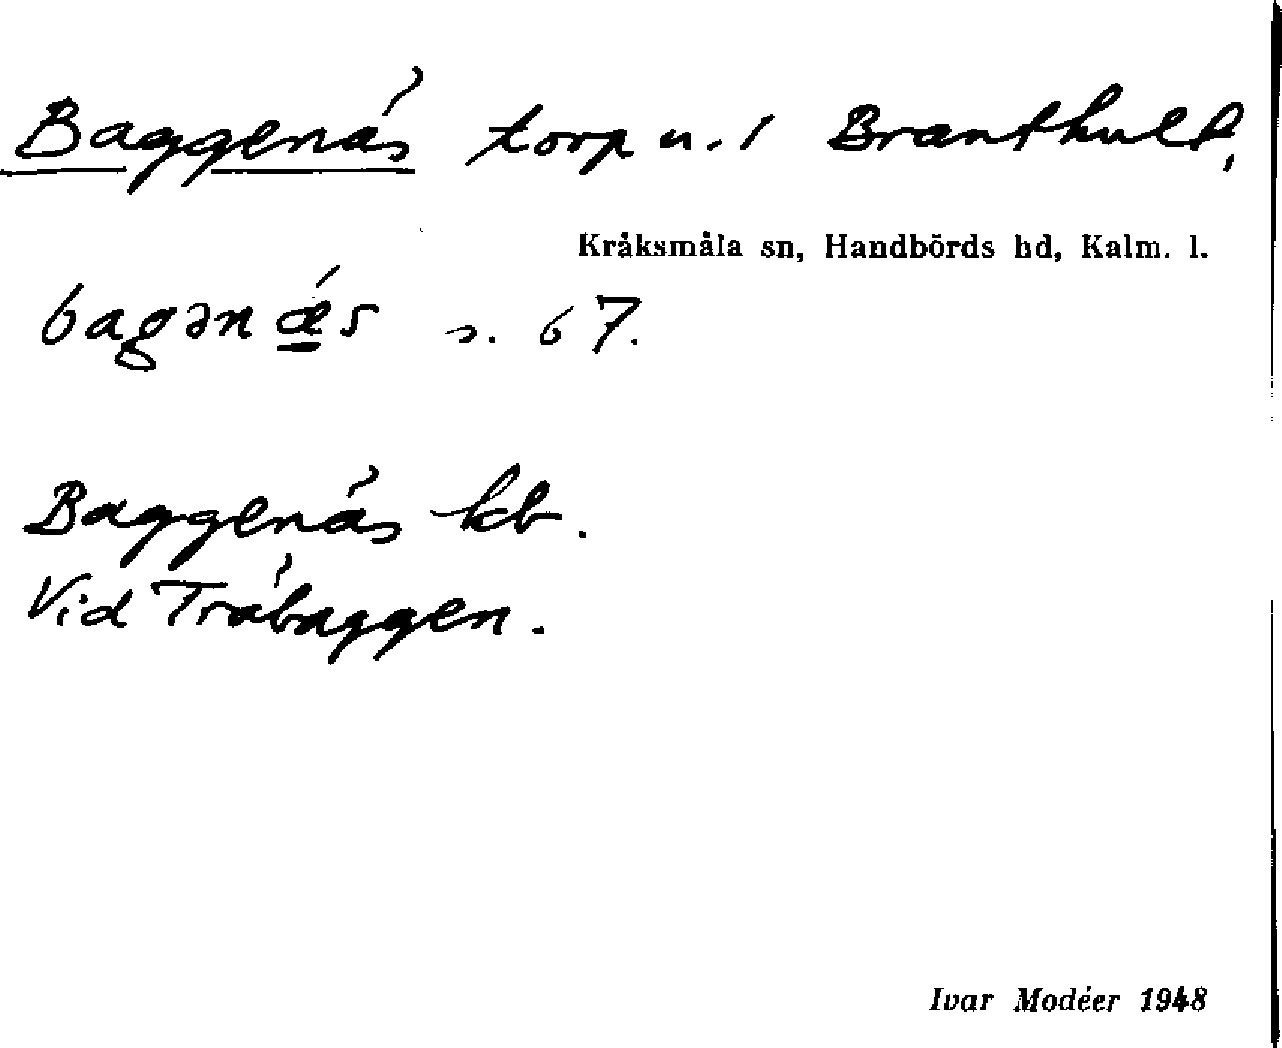 Baggenäs torp u. 1 Branthult,
Kråksmåla sn, Handbörds hd, Kalm. l.
bagənǽs s. 67.
Baggenäs kb.
Vid Träbaggen.
Ivar Modéer 1948